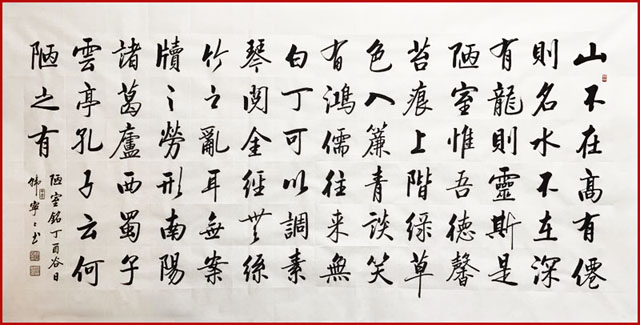 山不在高有僊
則名水不在深
有龍則靈斯是
陋室惟吾德馨
苔痕上階綠草
色入簾青談笑
有鴻儒往來無
白丁可以調素
琴閱金經無絲
竹之亂耳無案
牘之勞形南陽
諸葛廬西蜀子
雲亭孔子云何
陋之有
陋室銘丁酉谷日
書